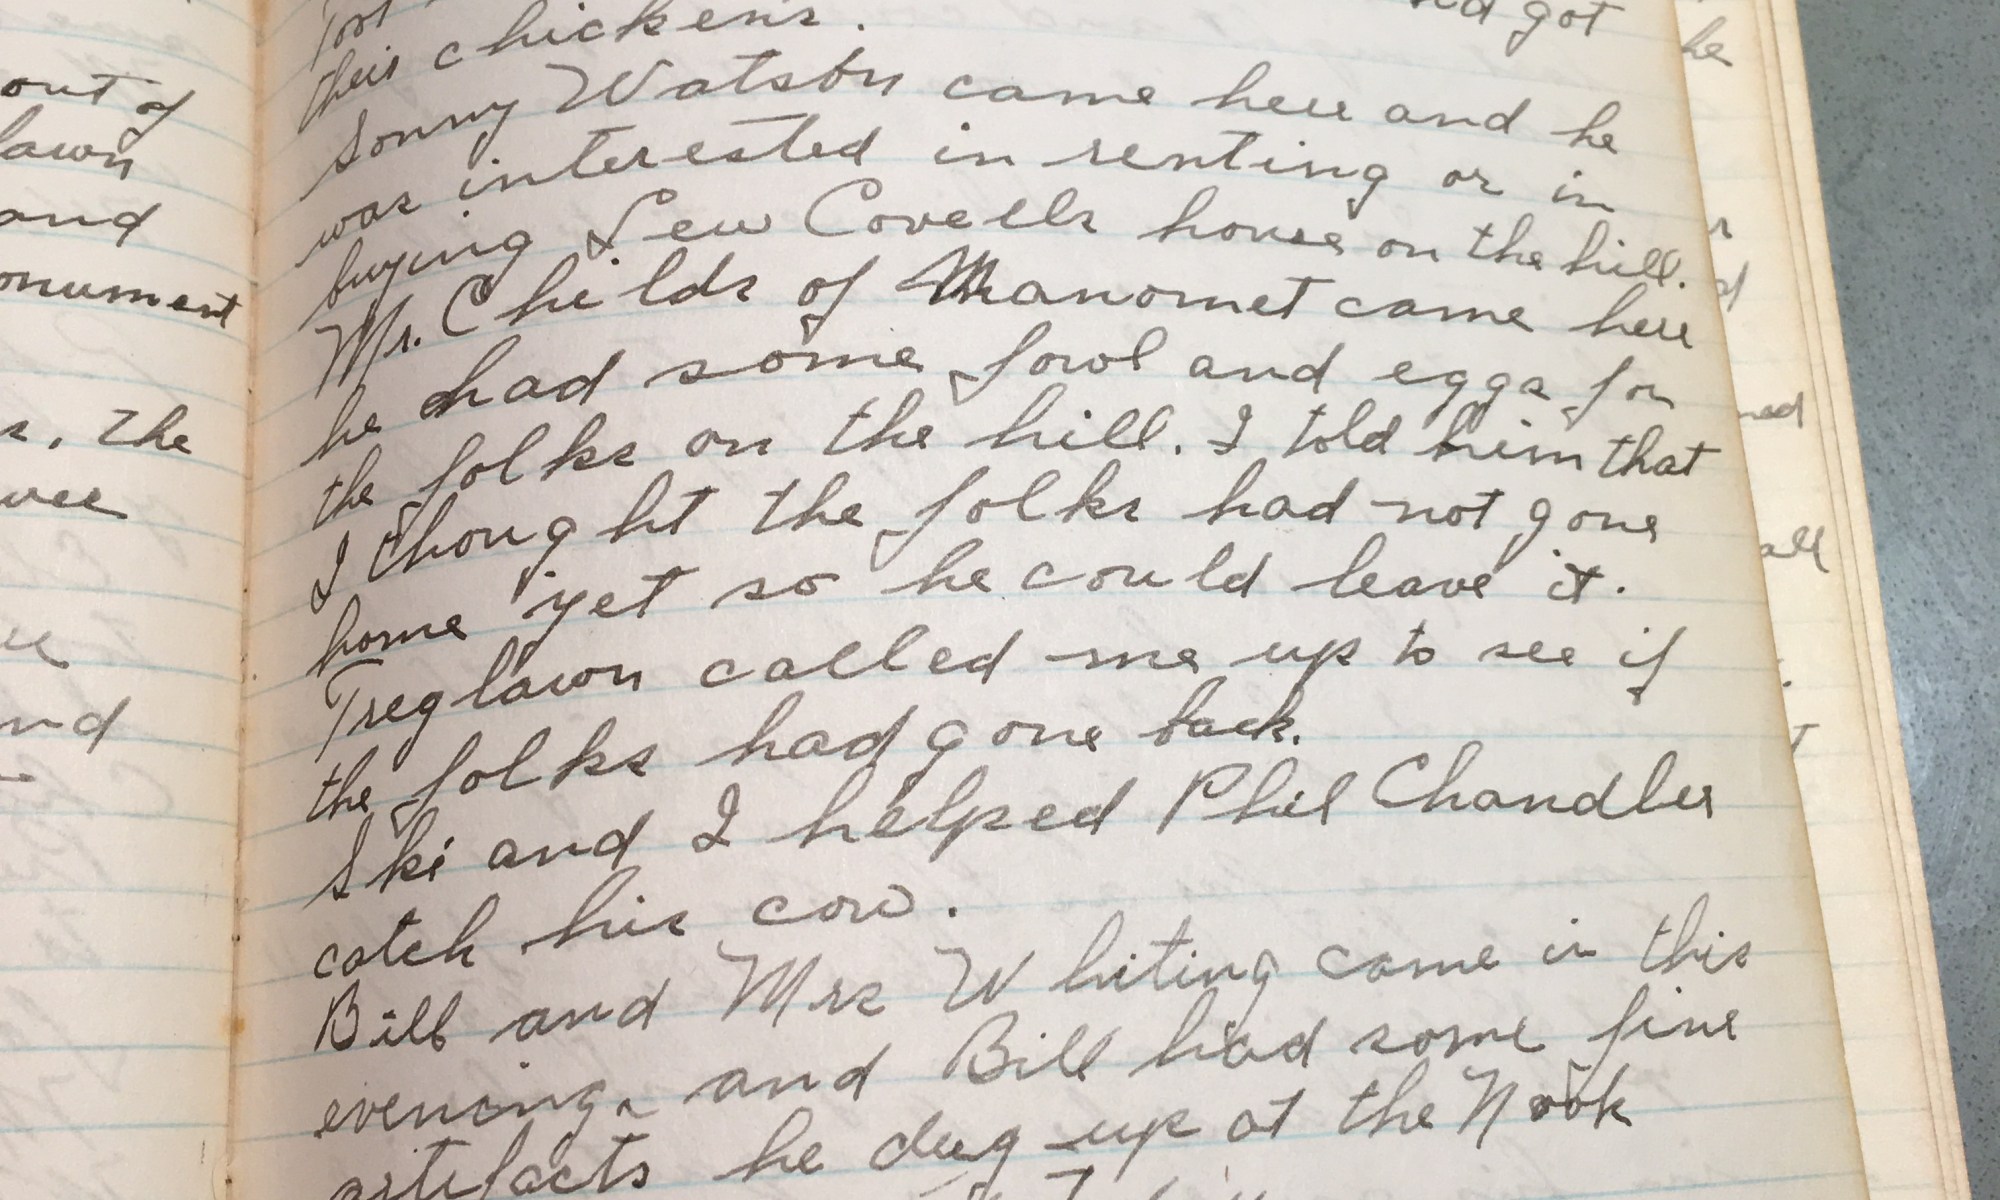 out of
lawn
and
the
wee
and got
their chickens.
Sonny Watson came here and he
was interested in renting or in
buying Lew Covells house on the hill.
Mr. Childs of Manomet came here
he had some fowl and eggs for
the folks on the hill. I told him that
I thought the folks had not gone
home yet so he could leave it.
Treglawn called me up to see if
the folks had gone back.
Ski and I helped Phil Chandler
catch his cow.
Bill and Mrs Whiting came in this
evening, and Bill had some fine
artifacts he dug up at the Nook
he
all